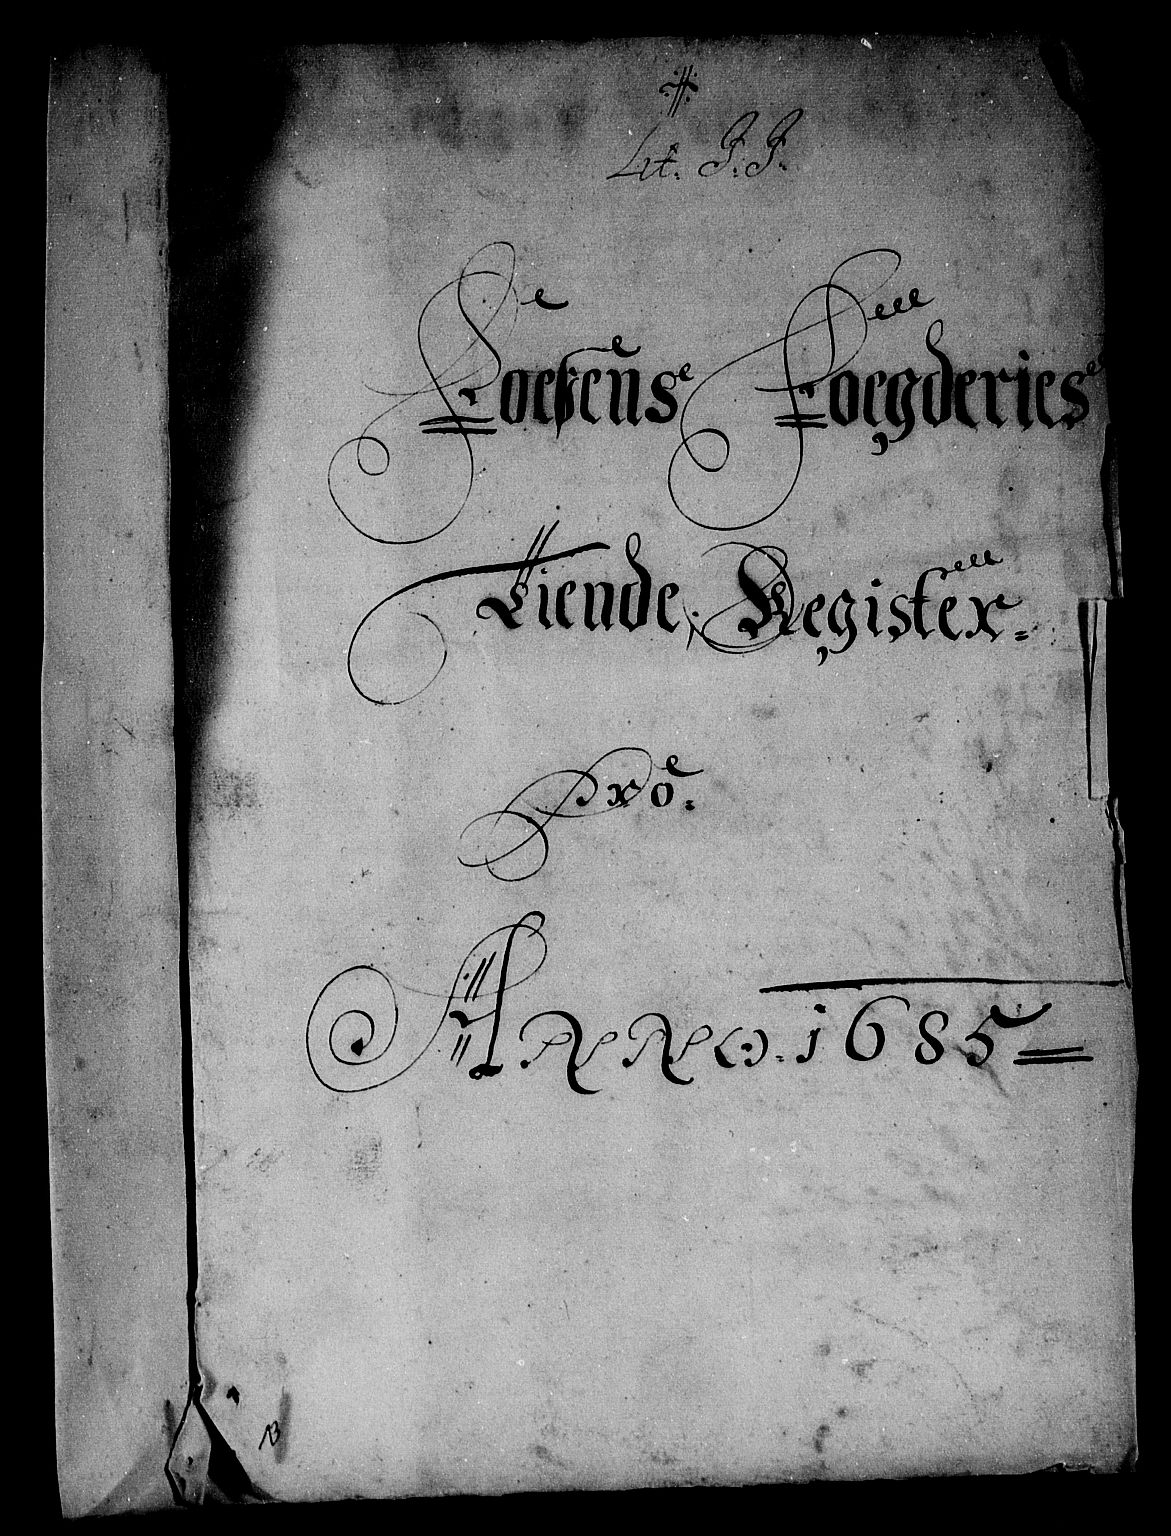 Lit. J. J.
Foesens Foegderies
Tiende Register.
Pro.
ANNO. 1685